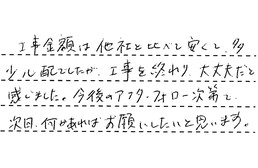 工事金額は他社と比べて安くて、多
少心配でしたが、工事を終わり、大丈夫だと
感じました。今後のアフターフォロー次第で、
次回、何かあればお願いしたいと思います。